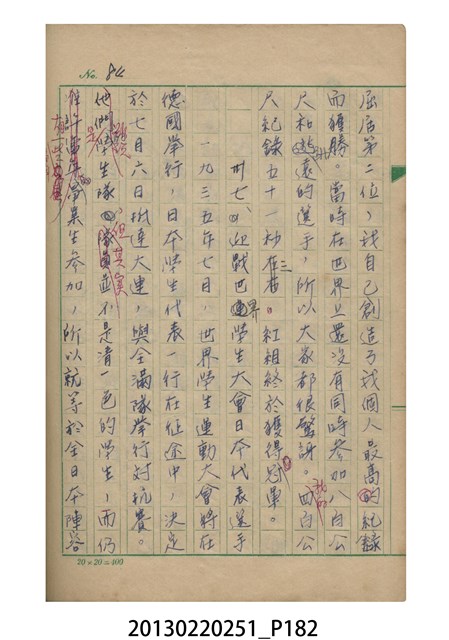 No. 84
屈居第二位，我自己創造了我個人最高的紀錄
而獲勝。當時在世界上還沒有同時參加八百公
尺和跳遠的選手，所以大家都很驚訝。四百公
尺紀錄五十一秒三在。紅組終於獲得冠軍。
卅七、迎戰世界學生大會日本代表選手
一九三五年七月，世界學生運動大會將在
德國舉行，日本學生代表一行在征途中，決定
於七月六日抵達大連，與全滿隊舉行對抗賽。
他們雖說是學生隊，但其實並不是清一色的學生，而仍
有畢業生參加，所以就等於全日本陣容
20×20=400
20130220251_P182